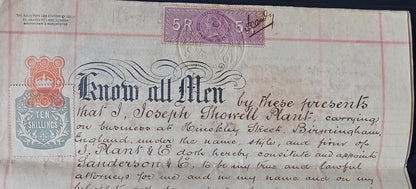 THE SOLICITORS LAW STATIONERY SOCIETY
5R 5
TEN
SHILLINGS
Know all Men by these presents
that I, Joseph Showell Plant, carrying
on business at Hinckley Street, Birmingham,
England, under the name, style, and firm of
J. Plant & Co doth hereby constitute and appoint
Sanderson & Co, to be my true and lawful
attorneys for me and in my name and on my